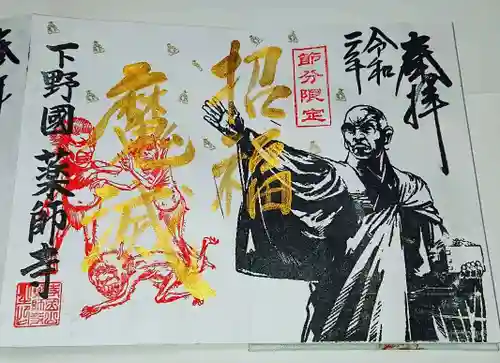 奉拝
令和
二年
節分限定
招福
魔滅
下野國薬師寺